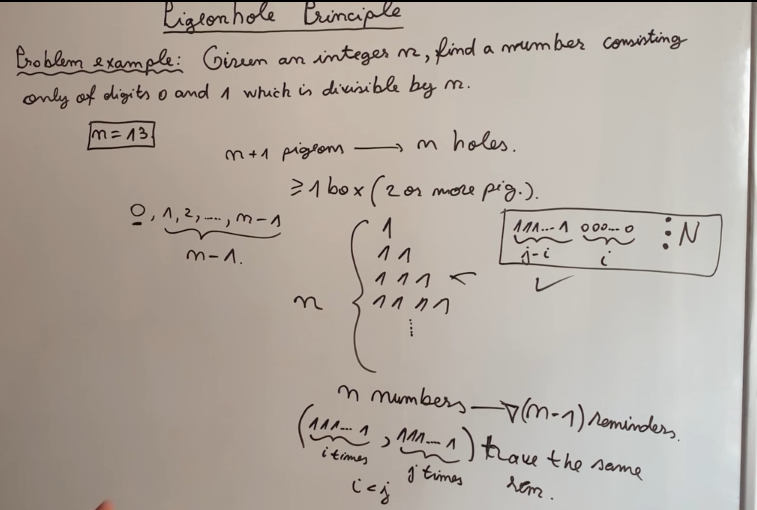 Pigeonhole Principle
Problem example: Given an integer n, find a number consisting
only of digits 0 and 1 which is divisible by n.
n=13
n+1 pigeons → n holes.
≥1 box (2 or more pig.).
0, 1, 2, ..., n-1
n-1.
n
1
11
111 ←
1111
⋮
111...1 000...0 ⋮N
j-i i
✓
n numbers → (n-1) reminders.
(111...1, 111...1) have the same
i times j times rem.
i<j